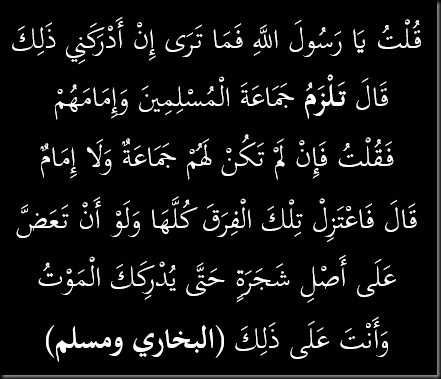 قُلْتُ يَا رَسُولَ اللَّهِ فَمَا تَرَى إِنْ أَدْرَكَنِي ذَلِكَ
قَالَ تَلْزَمُ جَمَاعَةَ الْمُسْلِمِينَ وَإِمَامَهُمْ
فَقُلْتُ فَإِنْ لَمْ تَكُنْ لَهُمْ جَمَاعَةٌ وَلَا إِمَامٌ
قَالَ فَاعْتَزِلْ تِلْكَ الْفِرَقَ كُلَّهَا وَلَوْ أَنْ تَعَضَّ
عَلَى أَصْلِ شَجَرَةٍ حَتَّى يُدْرِكَكَ الْمَوْتُ
وَأَنْتَ عَلَى ذَلِكَ (البخاري ومسلم)